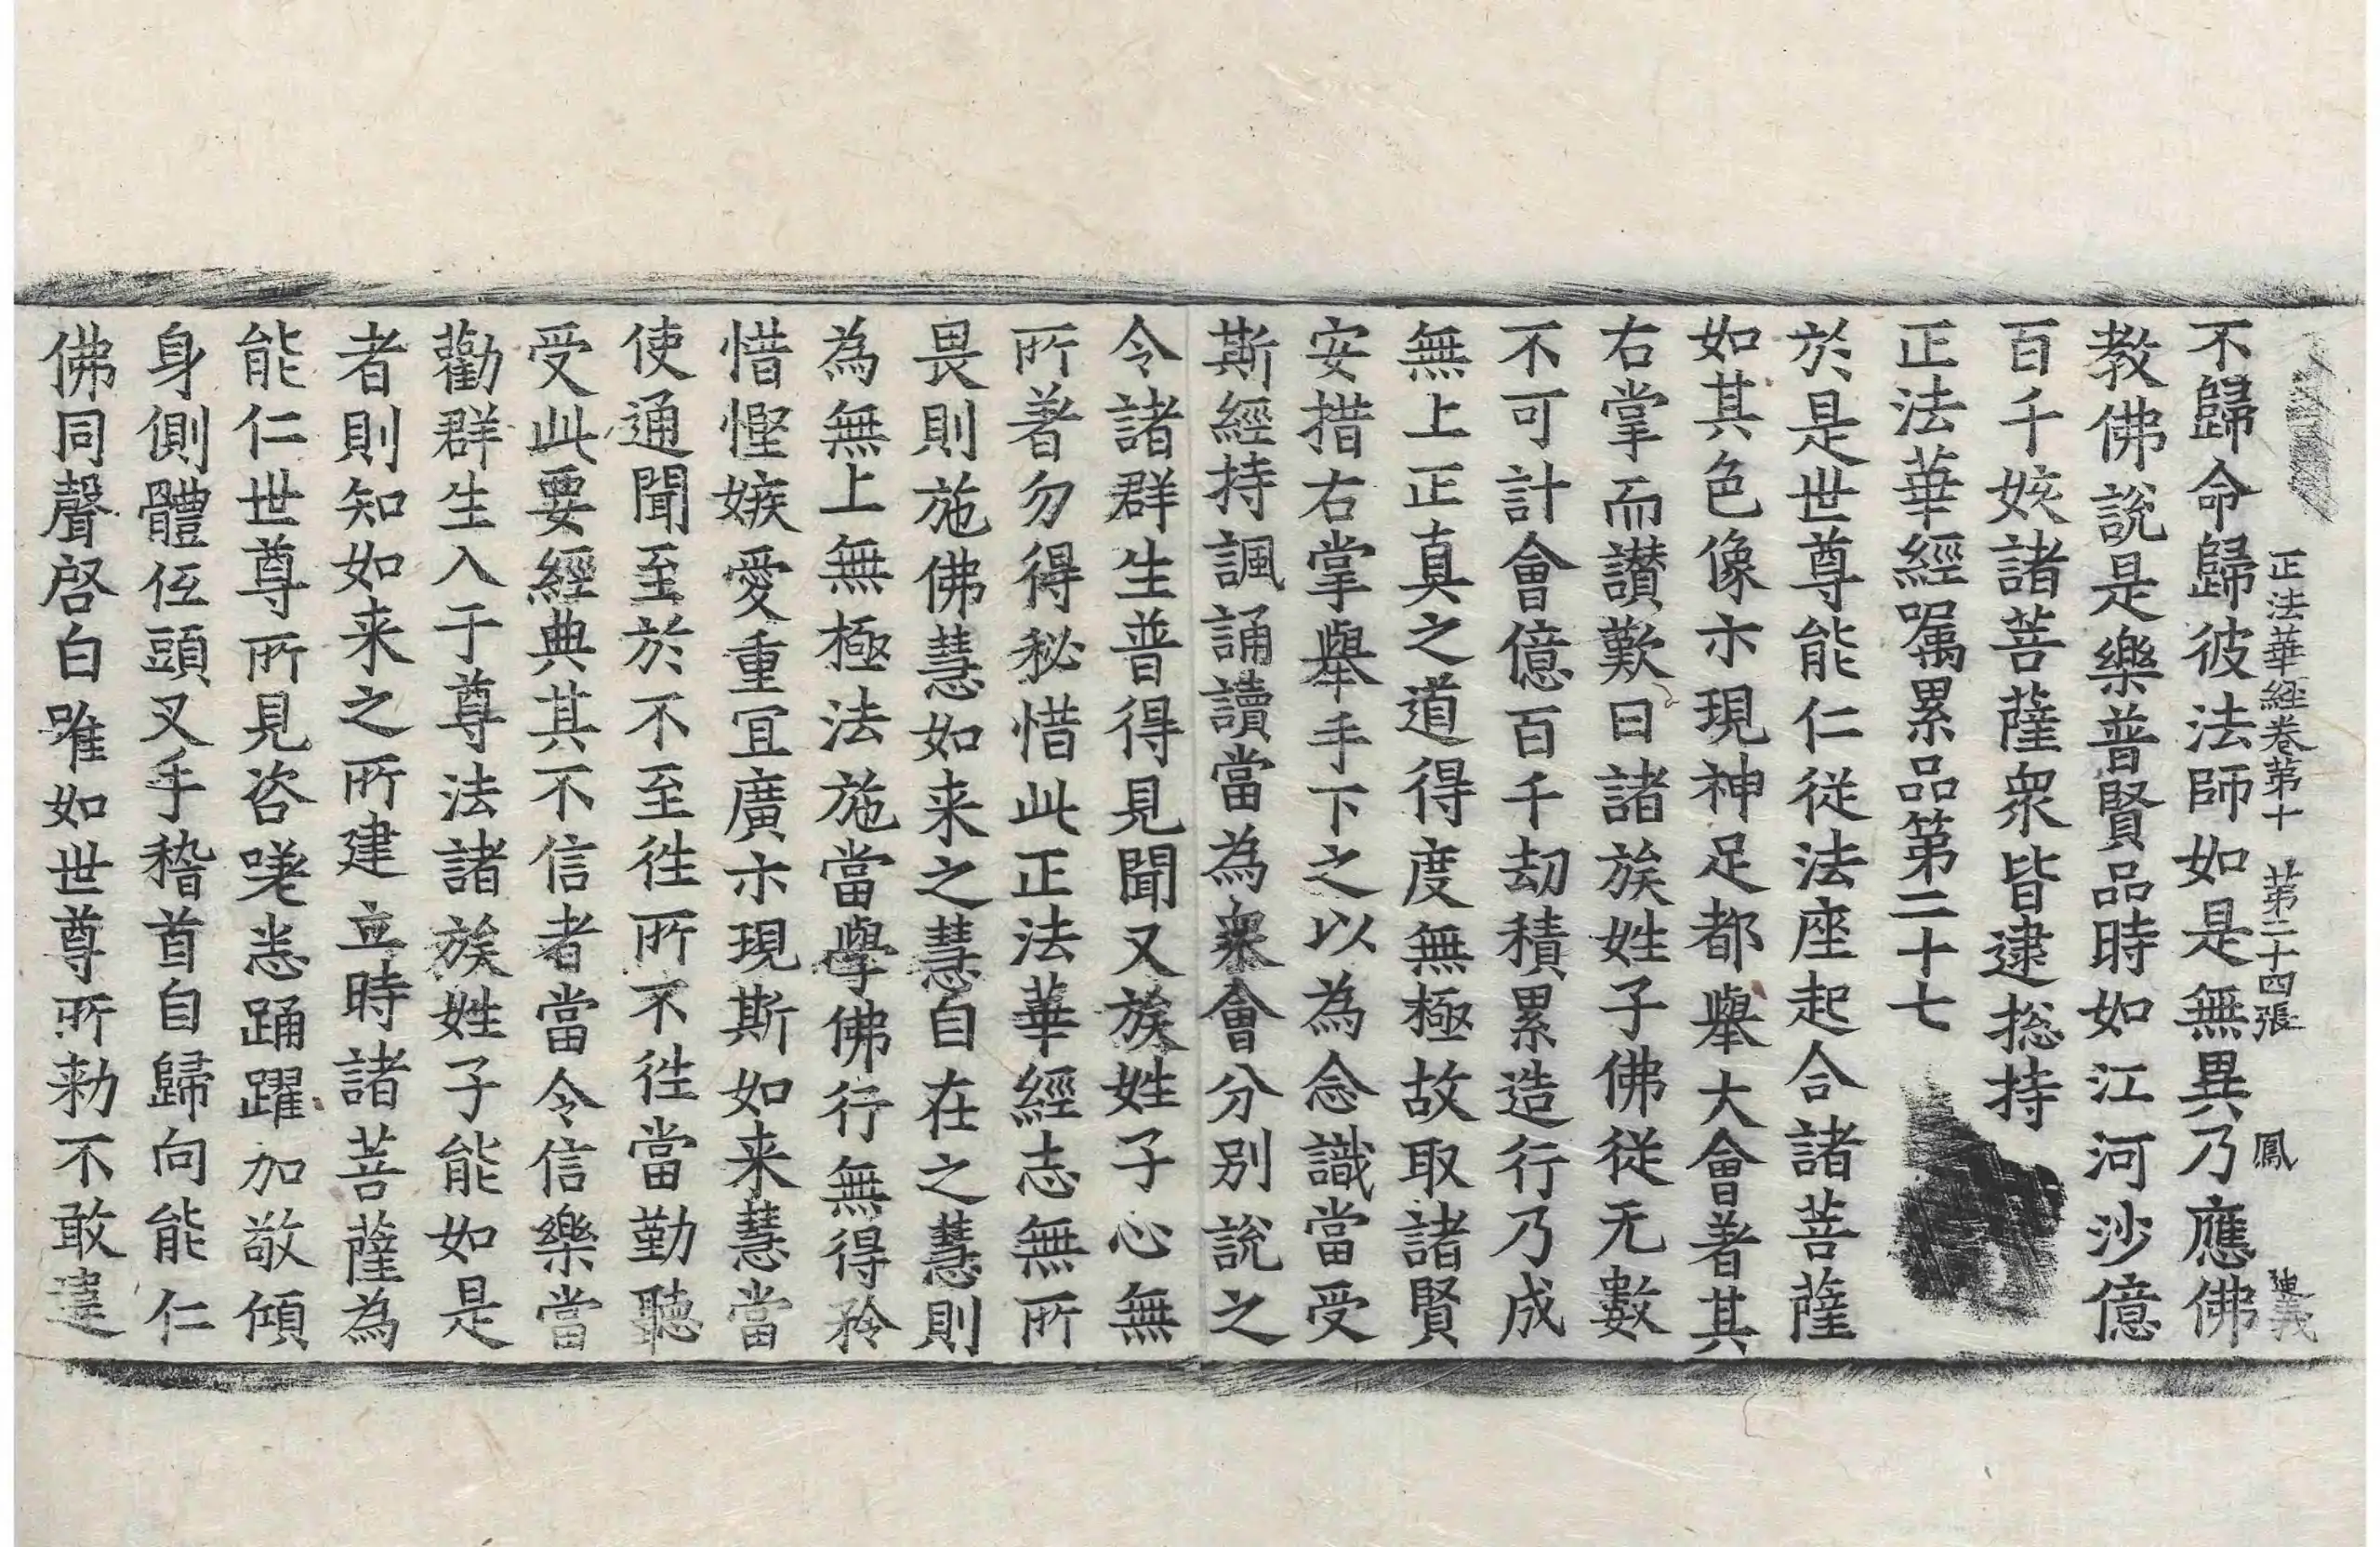 正法華經卷第十　第二十四張　鳳
不歸命歸彼法師如是無異乃應佛
教佛說是樂普賢品時如江河沙億
百千姟諸菩薩衆皆逮捴持
正法華經囑累品第二十七
於是世尊能仁從法座起合諸菩薩
如其色像亦現神足都舉大會著其
右掌而讃歎曰諸族姓子佛從无數
不可計會億百千劫積累造行乃成
無上正真之道得度無極故取諸賢
安措右掌舉手下之以為念識當受
斯經持諷誦讀當為衆會分別說之
令諸群生普得見聞又族姓子心無
所著勿得秘惜此正法華經志無所
畏則施佛慧如来之慧自在之慧則
為無上無極法施當學佛行無得矜
惜慳嫉愛重冝廣亦現斯如来慧當
使通聞至於不至徃所不徃當勤聽
受此要經典其不信者當令信樂當
勸群生入于尊法諸族姓子能如是
者則知如来之所建立時諸菩薩為
能仁世尊所見咨嗟悉踊躍加敬傾
身側體伍頭叉手稽首自歸向能仁
佛同聲啓白唯如世尊所勑不敢違